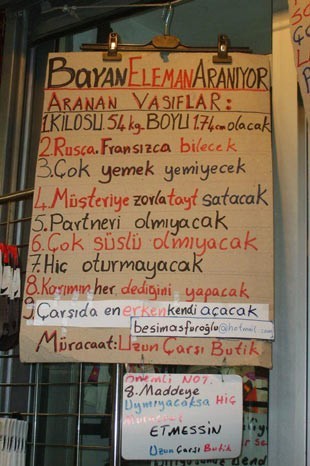 BAYAN ELEMAN ARANIYOR
ARANAN VASIFLAR:
1.KİLOSU 54kg. BOYU 1.74cm olacak
2. Rusça. Fransızca bilecek
3. Çok yemek yemiyecek
4. Müşteriye zorla tayt satacak
5. Partneri olmıyacak
6. Çok süslü olmıyacak
7. Hiç oturmayacak
8. Karımın her dediğini yapacak
9. Çarşıda en erken kendi açacak
besimasfuroğlu@hotmail.com
Müracaat: Uzun Çarşı Butik
Önemli NOT.
8. Maddeye
Uymıyacaksa HİÇ
ETMESSİN
Uzun Çarşı Butik